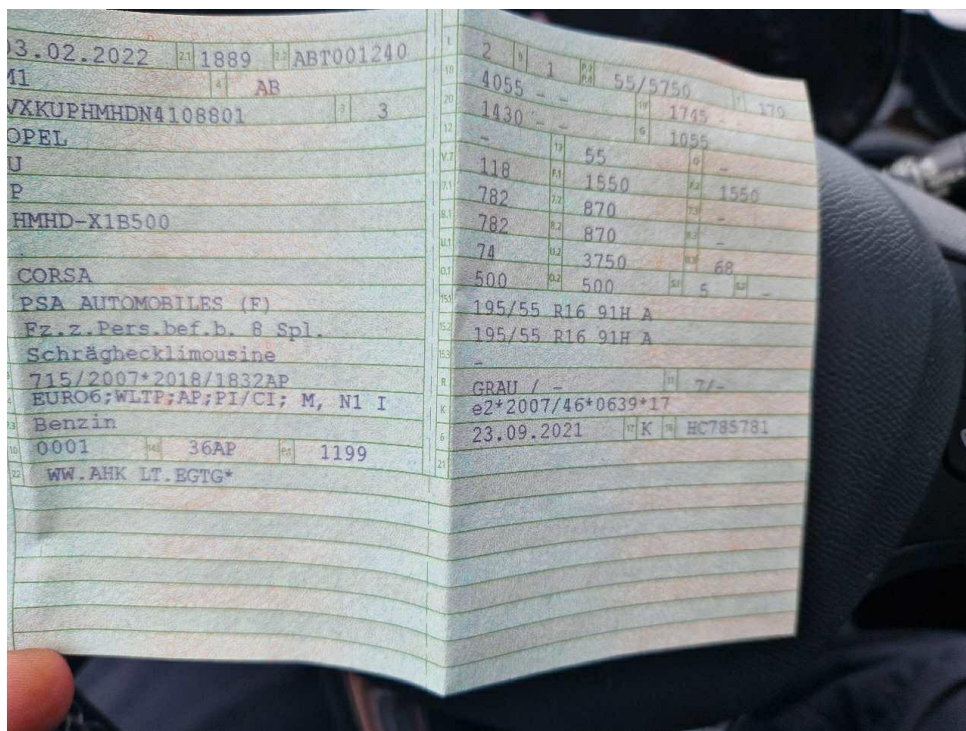 03.02.2022 2.1 1889 2.2 ABT001240
M1 4 AB
VXKUPHMHDN4108801 3 3
OPEL
U
P
HMHD-X1B500
CORSA
PSA AUTOMOBILES (F)
Fz.z.Pers.bef.b. 8 Spl.
Schräghecklimousine
715/2007*2018/1832AP
EURO6;WLTP;AP;PI/CI; M, N1 I
Benzin
10 0001 14.1 36AP P.1 1199
22 WW.AHK LT.EGTG*
L 2 9 1 P.2 P.4 55/5750 T 170
18 4055 - - 19 1745 - -
20 1430 - - G 1055
12 - 13 55 Q -
V.7 118 F.1 1550 F.2 1550
7.1 782 7.2 870 7.3 -
8.1 782 8.2 870 8.3 -
U.1 74 U.2 3750 U.3 68
O.1 500 O.2 500 S.1 5 S.2 -
15.1 195/55 R16 91H A
15.2 195/55 R16 91H A
15.3 -
R GRAU / - 11 7/-
K e2*2007/46*0639*17
6 23.09.2021 17 K 16 HC785781
21